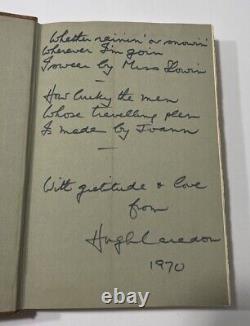 Whether rainin' or snowin'
Wherever I'm goin
I swear by Miss Gowin
How lucky the men
Whose travelling plan
Is made by Joann
With gratitude & love
from
Hugh Caradon
1970